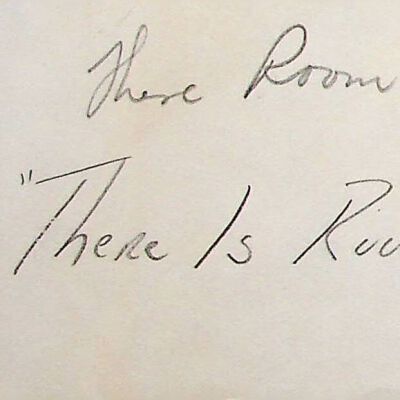 There Room
"There Is